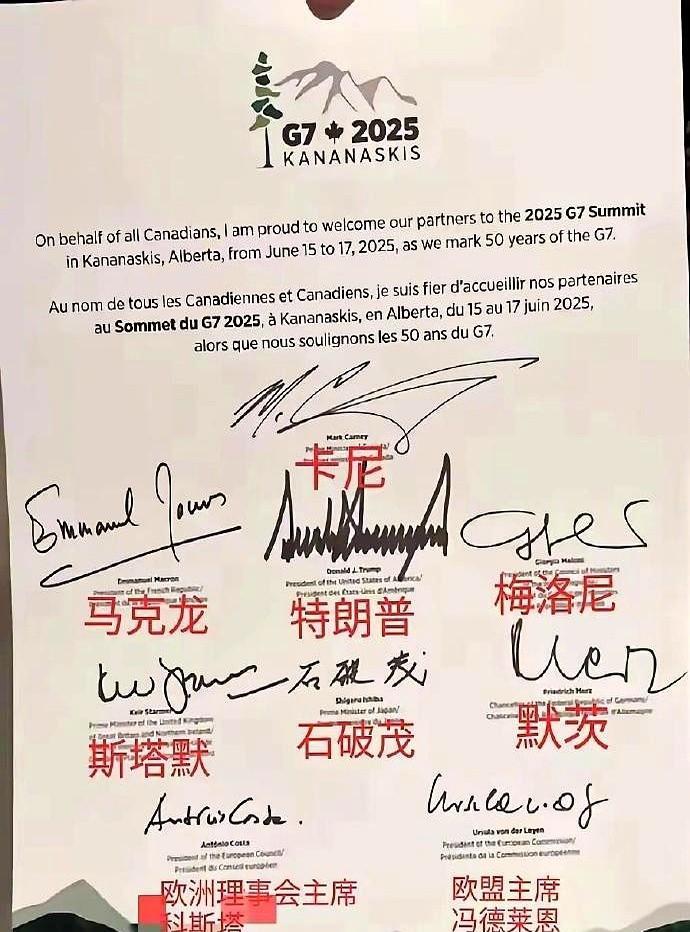 G7 2025
KANANASKIS
On behalf of all Canadians, I am proud to welcome our partners to the 2025 G7 Summit
in Kananaskis, Alberta, from June 15 to 17, 2025, as we mark 50 years of the G7.
Au nom de tous les Canadiennes et Canadiens, je suis fier d'accueillir nos partenaires
au Sommet du G7 2025, à Kananaskis, en Alberta, du 15 au 17 juin 2025,
alors que nous soulignons les 50 ans du G7.
Mark Carney
卡尼
Emmanuel Macron
President of the French Republic/
马克龙
Donald J. Trump
President of the United States of America/
Président des États-Unis d'Amérique
特朗普
Giorgia Meloni
President of the Council of Ministers
梅洛尼
Keir Starmer
Prime Minister of the United Kingdom
of Great Britain and Northern Ireland/
斯塔默
石破茂
Shigeru Ishiba
Prime Minister of Japan/
石破茂
Merz
Friedrich Merz
Chancellor of the Federal Republic of Germany/
默茨
António Costa
António Costa
President of the European Council/
Président du Conseil européen
欧洲理事会主席
科斯塔
Ursula von der Leyen
President of the European Commission/
Présidente de la Commission européenne
欧盟主席
冯德莱恩